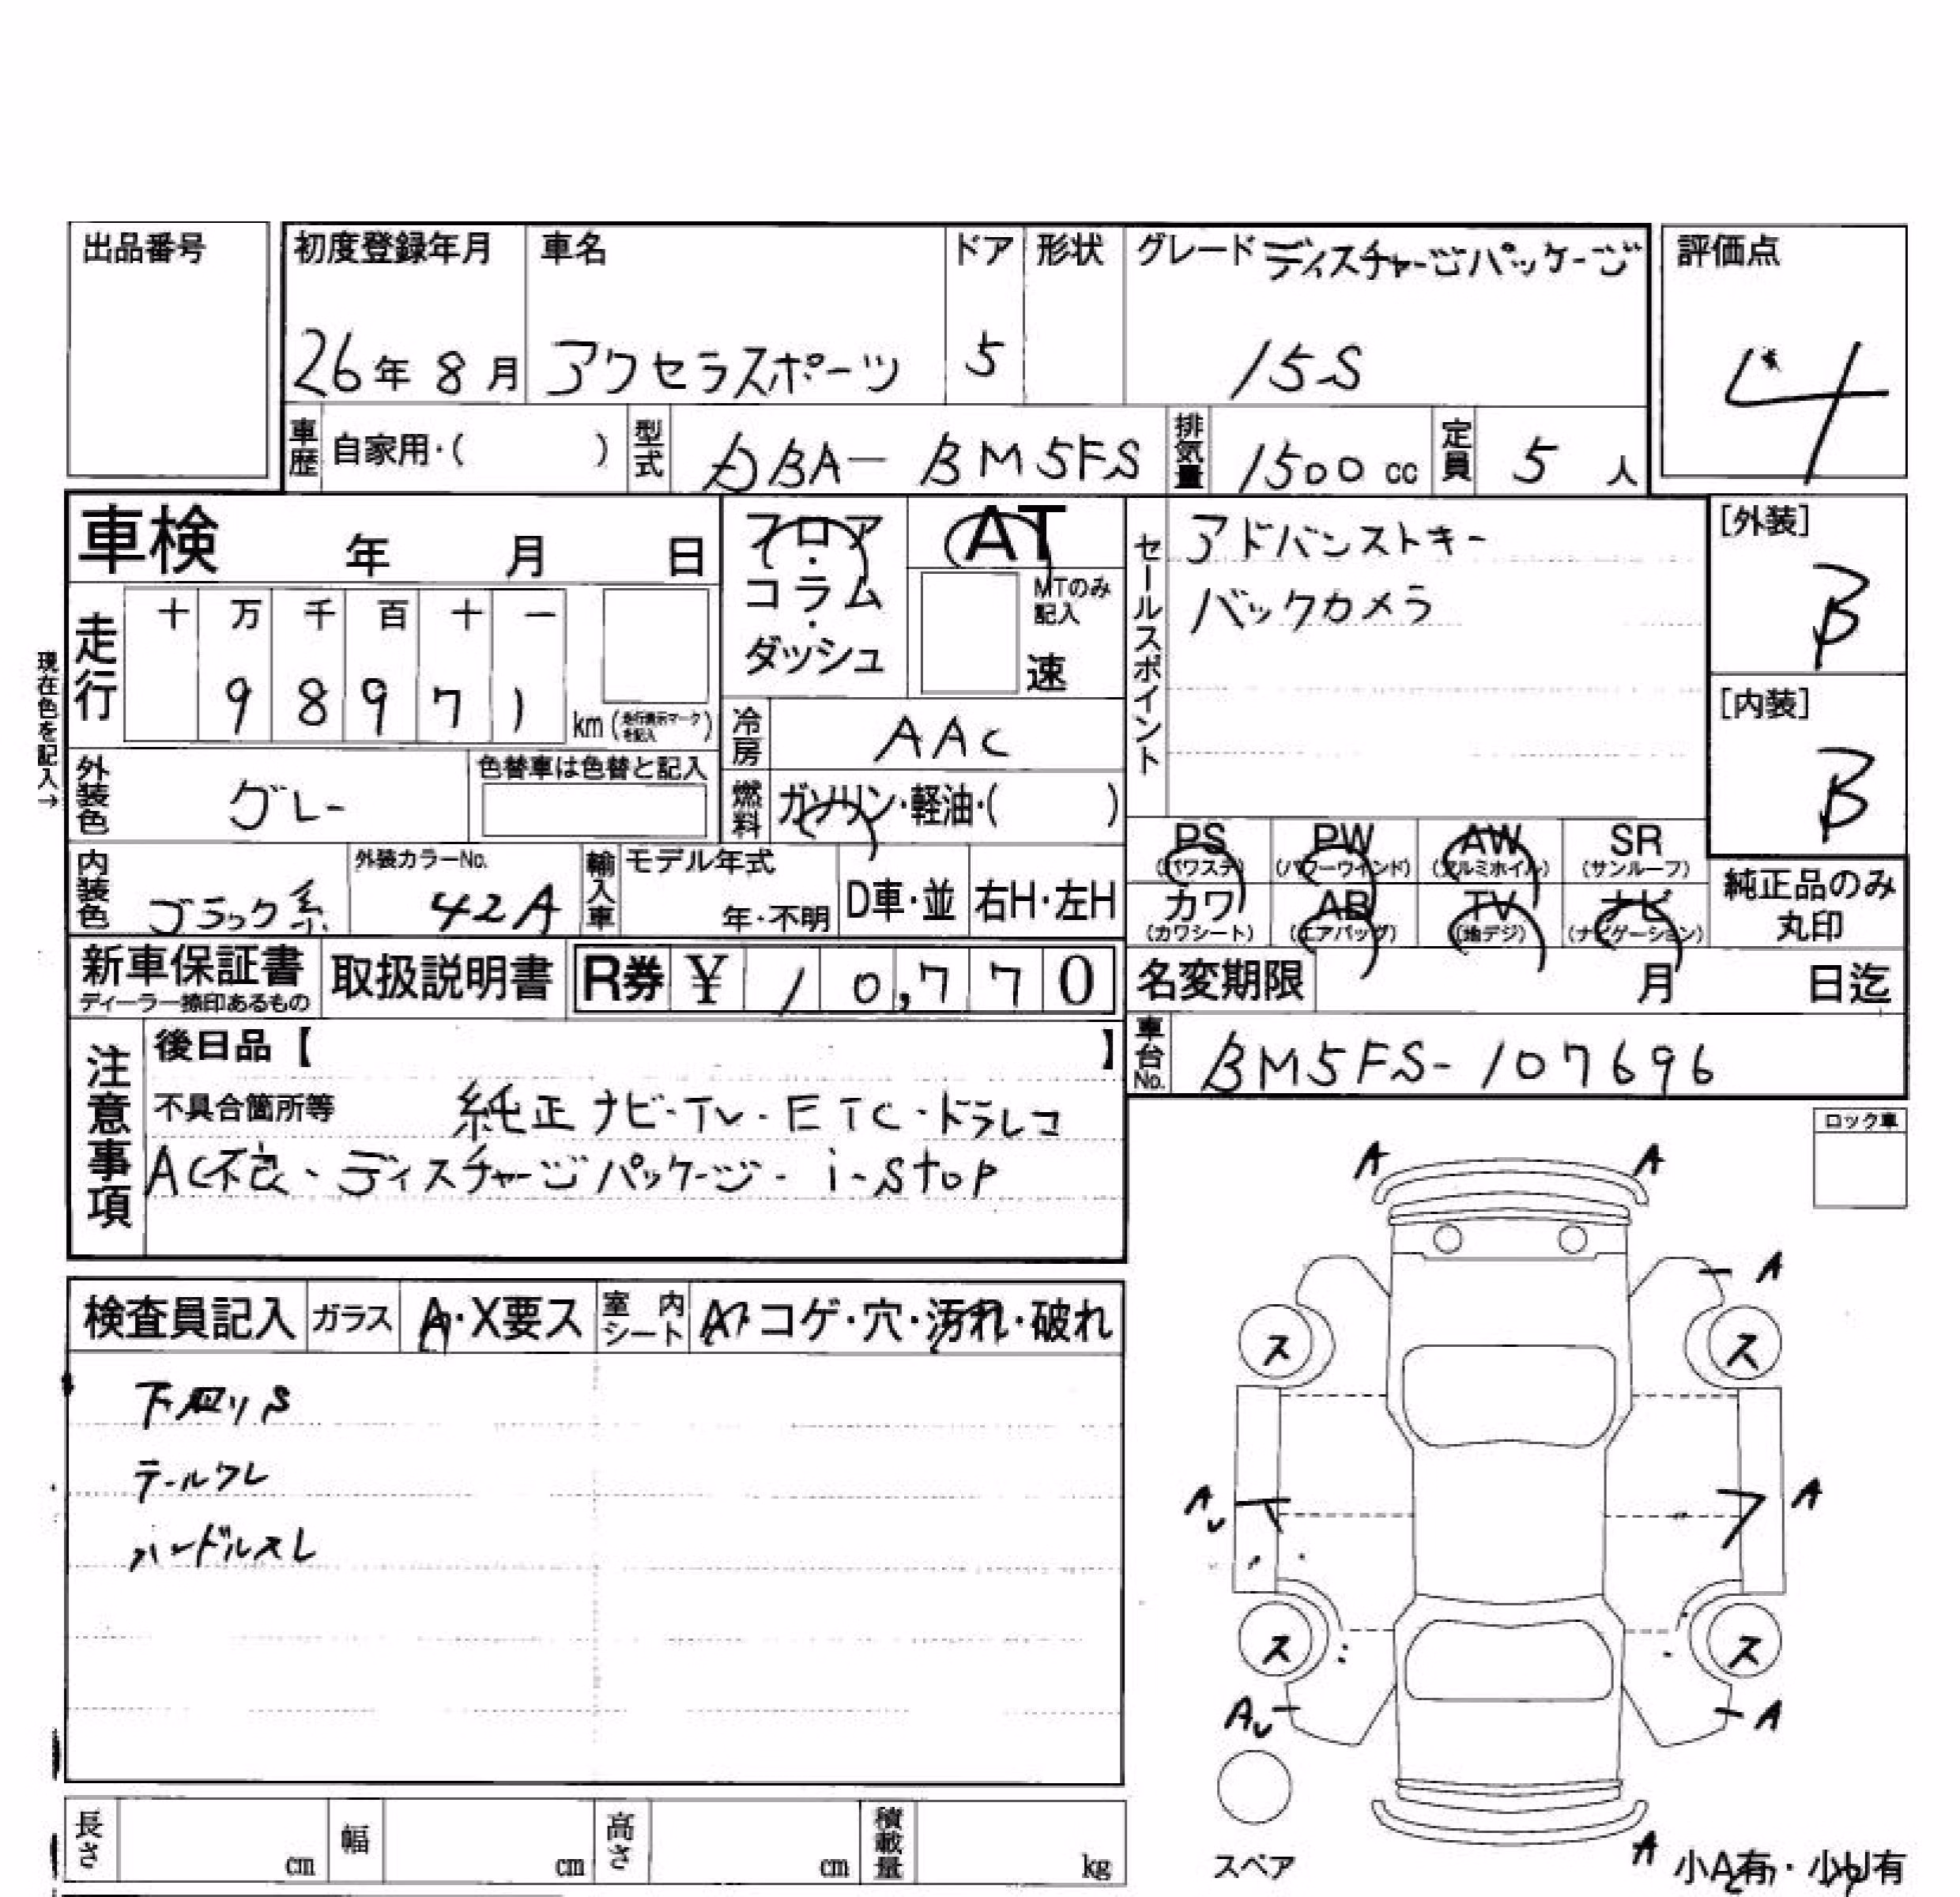 出品番号
初度登録年月 車名 ドア 形状 グレード ディスチャージパッケージ 評価点
26年 8月 アクセラスポーツ 5 15S 4
車歴 自家用・( ) 型式 DBA- BM5FS 排気量 1500 cc 定員 5 人
車検 年 月 日
フロア・コラム・ダッシュ
AT
MTのみ記入
速
セールスポイント
アドバンストキー
バックカメラ
[外装]
B
[内装]
B
現在色を記入→
走行 十 万 千 百 十 一
9 8 9 7 1 km (走行表示マークを記入)
冷房 AAC
外装色 グレー 色替車は色替と記入
燃料 ガソリン・軽油・( )
PS (パワステ) PW (パワーウインド) AW (アルミホイル) SR (サンルーフ)
カワ (カワシート) AB (エアバッグ) TV (地デジ) ナビ (ナビゲーション)
純正品のみ丸印
内装色 ブラック系 外装カラーNo. 42A 輸入車 モデル年式 年・不明 D車・並 右H・左H
新車保証書 ディーラー捺印あるもの 取扱説明書 R券 ¥ 10,770 名変期限 月 日迄
注意事項
後日品【 】
車台No. BM5FS-107696
不具合箇所等 純正ナビ・TV・ETC・ドラレコ
AC不良、ディスチャージパッケージ・i-stop
ロック車
検査員記入 ガラス A・X要ス 室内シート コゲ・穴・汚れ・破れ
下回りS
テールワレ
ハンドルスレ
A A
A
ス ス
A
ス ス
A
A
スペア
小A有・小U有
長さ cm 幅 cm 高さ cm 積載量 kg